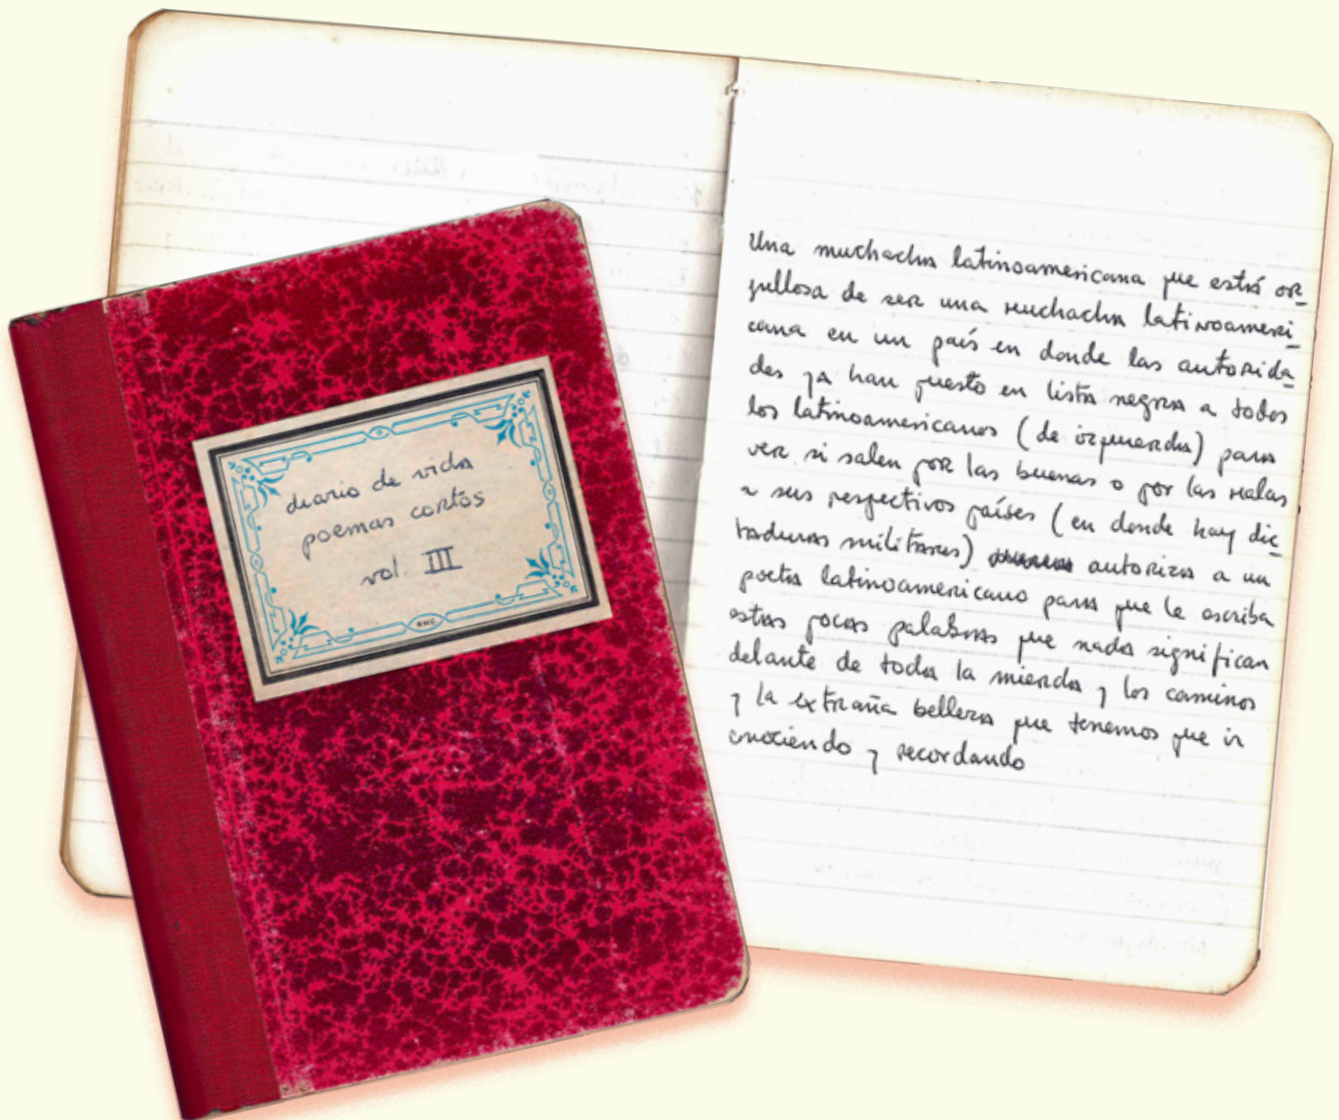 diario de vida
poemas cortos
vol. III
RMC
Una muchacha latinoamericana que está or-
gullosa de ser una muchacha latinoameri-
cana en un país en donde las autorida-
des ya han puesto en lista negra a todos
los latinoamericanos (de izquierda) para
ver si salen por las buenas o por las malas
a sus respectivos países (en donde hay dic-
taduras militares) autoriza a un
poeta latinoamericano para que le escriba
estas pocas palabras que nada significan
delante de toda la mierda y los caminos
y la extraña belleza que tenemos que ir
conociendo y recordando